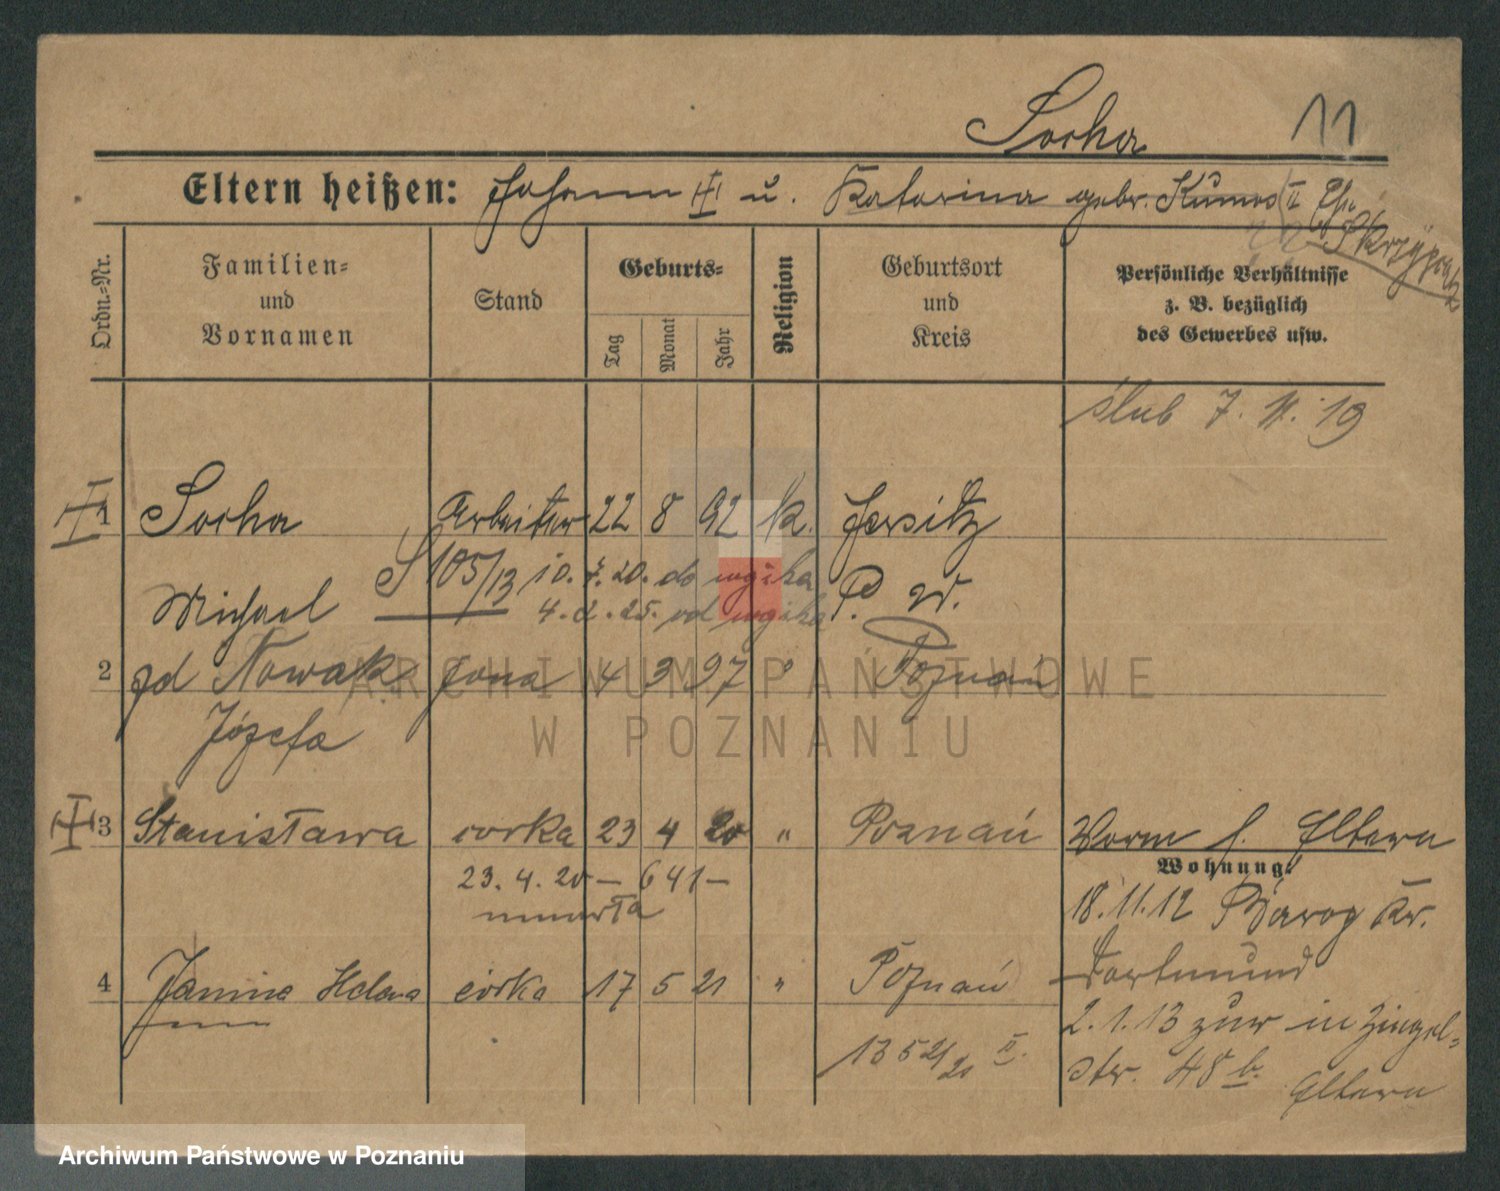 Socha 11
Eltern heißen: Johann u. Katarina gebr. Kumos II Ehe
Skrzypczak
Ordn.-Nr.
Familien-
und
Vornamen
Stand
Geburts-
Tag
Monat
Jahr
Religion
Geburtsort
und
Kreis
Persönliche Verhältnisse
z. B. bezüglich
des Gewerbes usw.
ślub 7. 11. 19
1 Socha Arbeiter 22 8 92 k. Jersitz
S 105/13 10. 7. 20. do wojska
Michael 4. 2. 25. od wojska P. W.
2 zd Nowak żona 4 3 97 " Poznań
Józefa
3 Stanisława córka 23 4 20 " Poznań Vorm. b. Eltern
Wohnung:
23. 4. 20 – 641 –
umarła
18. 11. 12 Kr.
4 Janina Helena córka 17 5 21 " Poznań Dortmund
2. 1. 13 zur in Ziegel-
1352/21 II.
str. 48 b. Eltern
ARCHIWUM PAŃSTWOWE
W POZNANIU
Archiwum Państwowe w Poznaniu